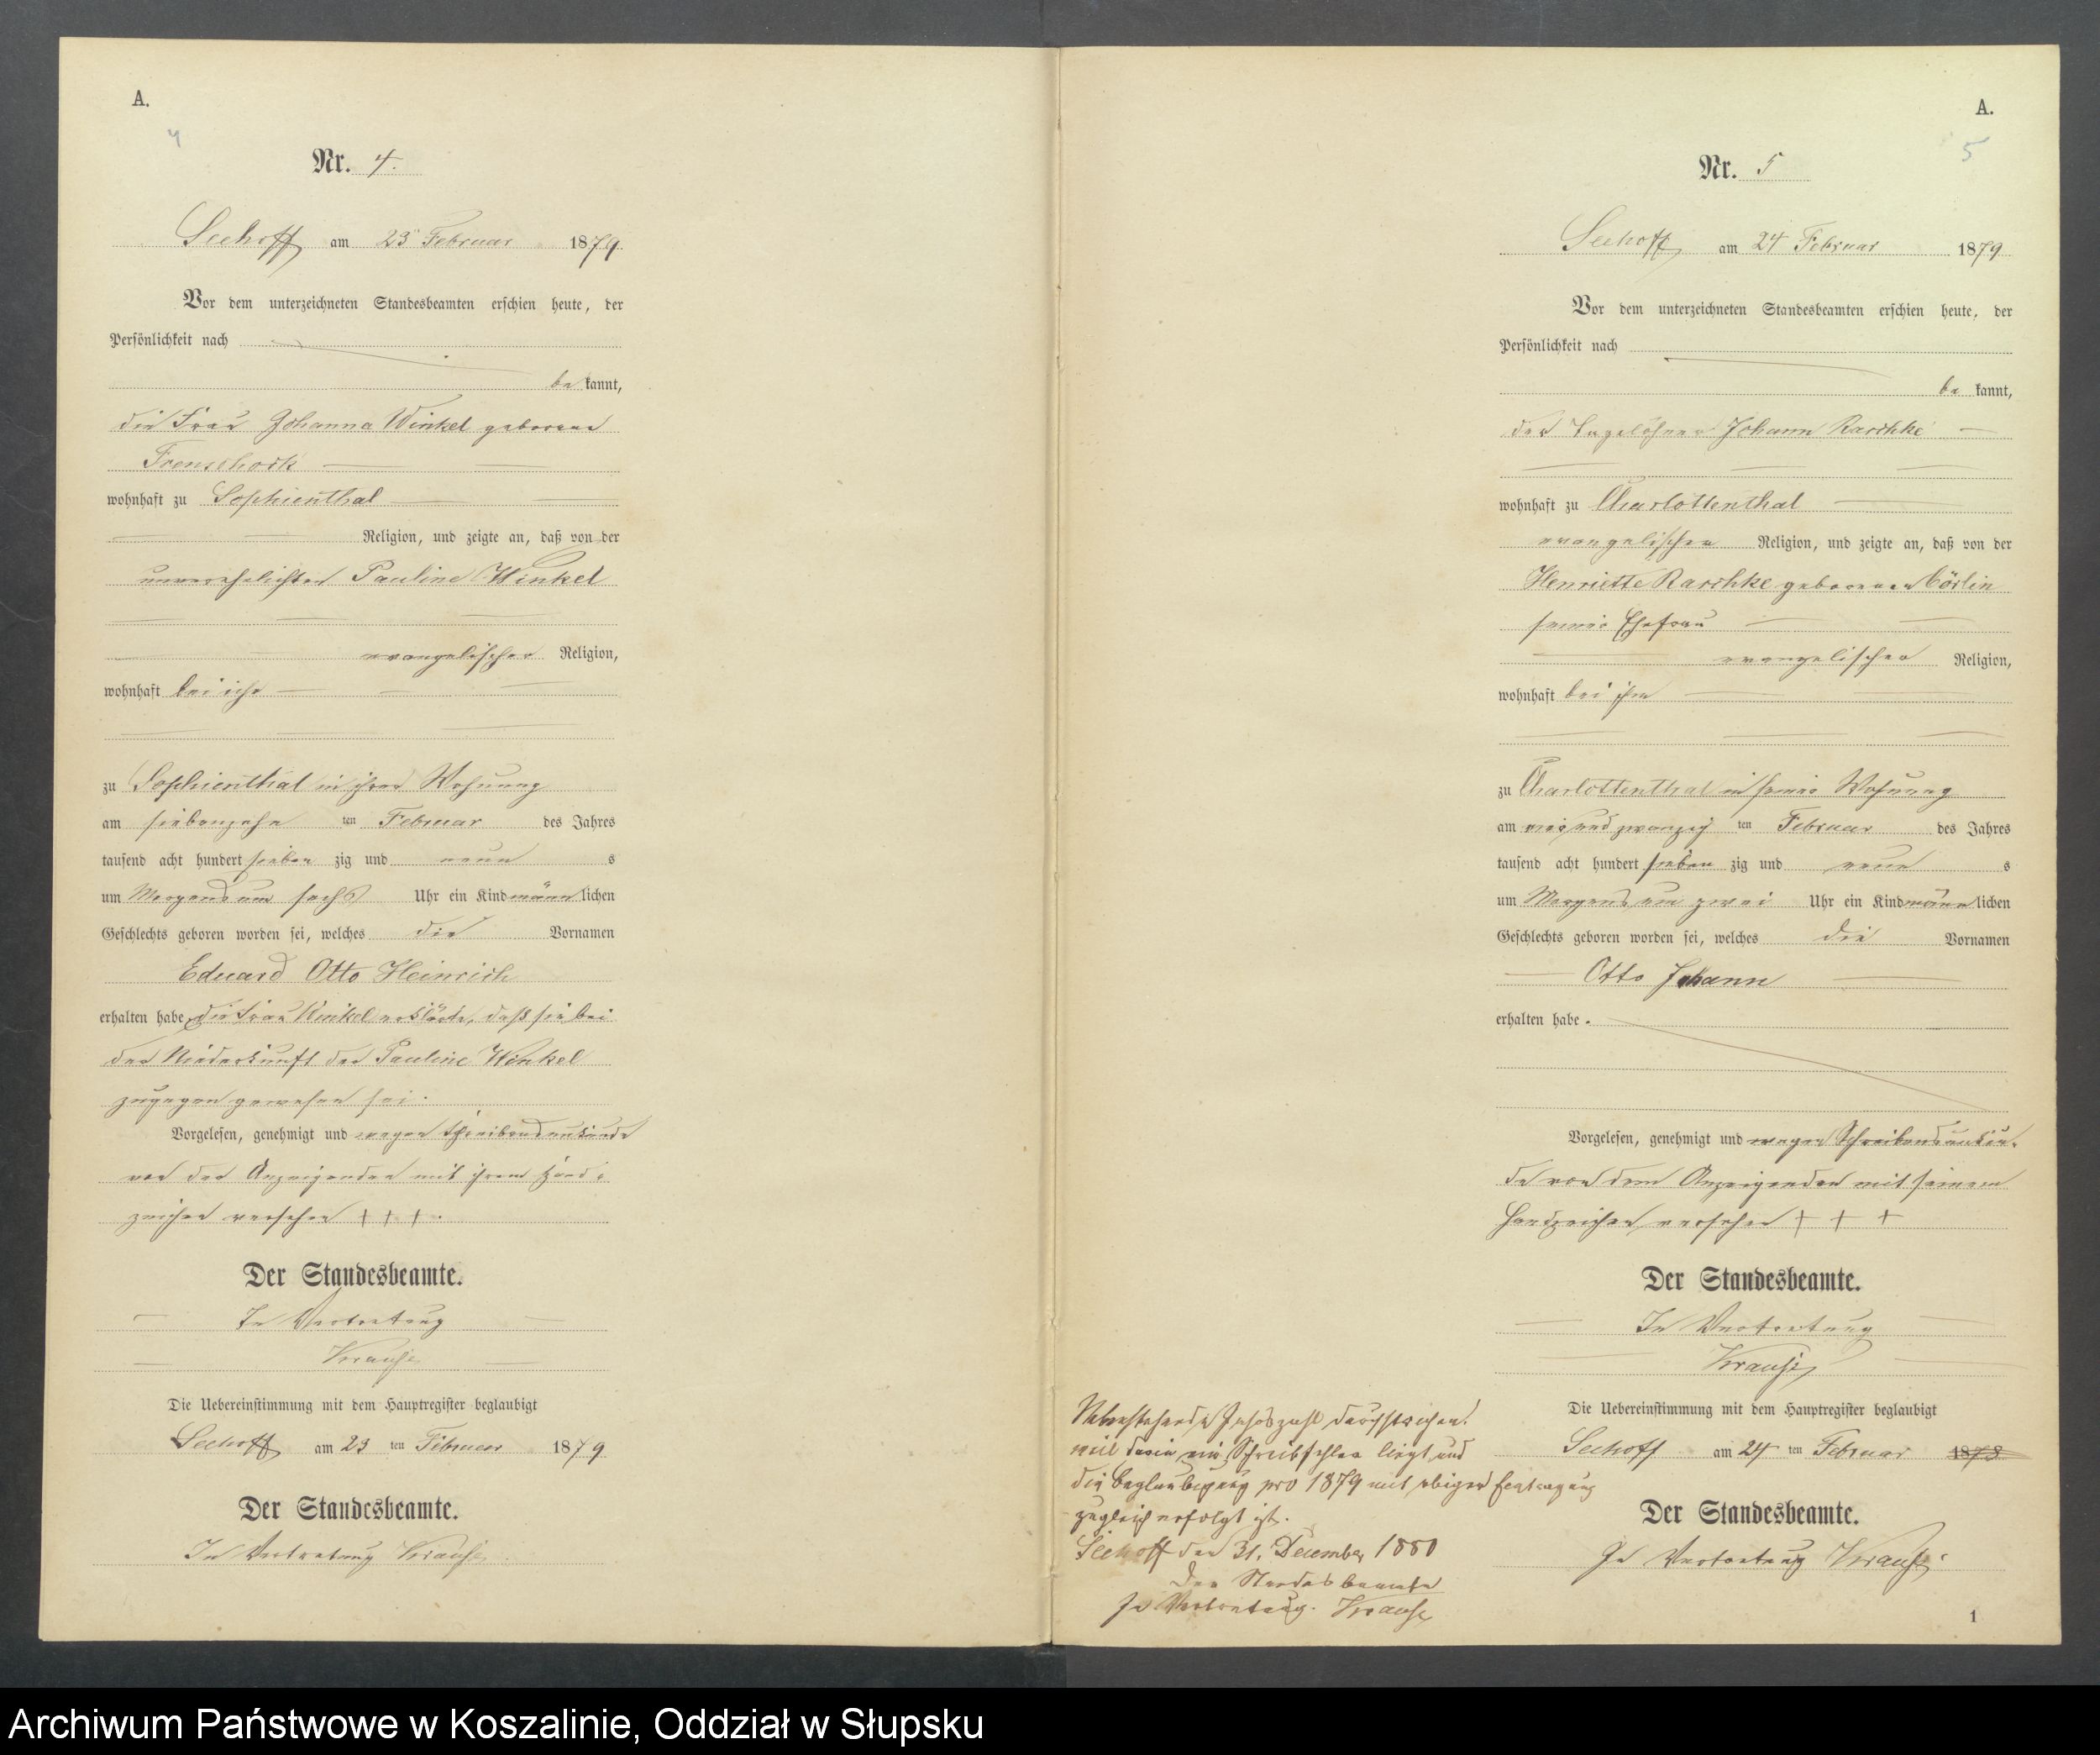 A.
4
Nr. 4.
Seehoff am 23 Februar 1879.
Vor dem unterzeichneten Standesbeamten erschien heute, der
Persönlichkeit nach
be kannt,
die Frau Johanna Winkel geborene
wohnhaft zu Sophienthal
Religion, und zeigte an, daß von der
unverehelichten Pauline Winkel
evangelischer Religion,
wohnhaft bei ihr
zu Sophienthal in ihrer Wohnung
am siebenzehn ten Februar des Jahres
tausend acht hundert sieben zig und neun s
um Morgens um sechs Uhr ein Kind männ lichen
Geschlechts geboren worden sei, welches die Vornamen
Eduard Otto Heinrich
erhalten habe, die Frau Winkel erklärte, daß sie bei
der Niederkunft der Pauline Winkel
zugegen gewesen sei.
Vorgelesen, genehmigt und wegen Schreibensunkunde
von der Anzeigenden mit ihrem Hand-
zeichen versehen + + +.
Der Standesbeamte.
In Vertretung
Krause
Die Uebereinstimmung mit dem Hauptregister beglaubigt
Seehoff am 23 ten Februar 1879
Der Standesbeamte.
In Vertretung Krause
A.
5
Nr. 5
Seehoff am 24 Februar 1879
Vor dem unterzeichneten Standesbeamten erschien heute, der
Persönlichkeit nach
be kannt,
der Tagelöhner Johann Raschke
wohnhaft zu Charlottenthal
evangelischer Religion, und zeigte an, daß von der
Henriette Raschke geborenen Cörlin
seiner Ehefrau
evangelischer Religion,
wohnhaft bei ihm
zu Charlottenthal in seiner Wohnung
am vier und zwanzig ten Februar des Jahres
tausend acht hundert sieben zig und neun s
um Morgens um zwei Uhr ein Kind männ lichen
Geschlechts geboren worden sei, welches die Vornamen
Otto Johann
erhalten habe.
Vorgelesen, genehmigt und wegen Schreibensunkun-
de von dem Anzeigenden mit seinem
Handzeichen versehen + + +
Der Standesbeamte.
In Vertretung
Krause
Die Uebereinstimmung mit dem Hauptregister beglaubigt
Seehoff am 24 ten Februar 1878
Der Standesbeamte.
In Vertretung Krause
Nebenstehende Jahreszahl durchstrichen,
weil darin ein Schreibfehler liegt und
die Beglaubigung pro 1879 mit obiger Eintragung
zugleich erfolgt ist.
Seehoff den 31. December 1880
Der Standesbeamte
In Vertretung. Krause
1
Archiwum Państwowe w Koszalinie, Oddział w Słupsku